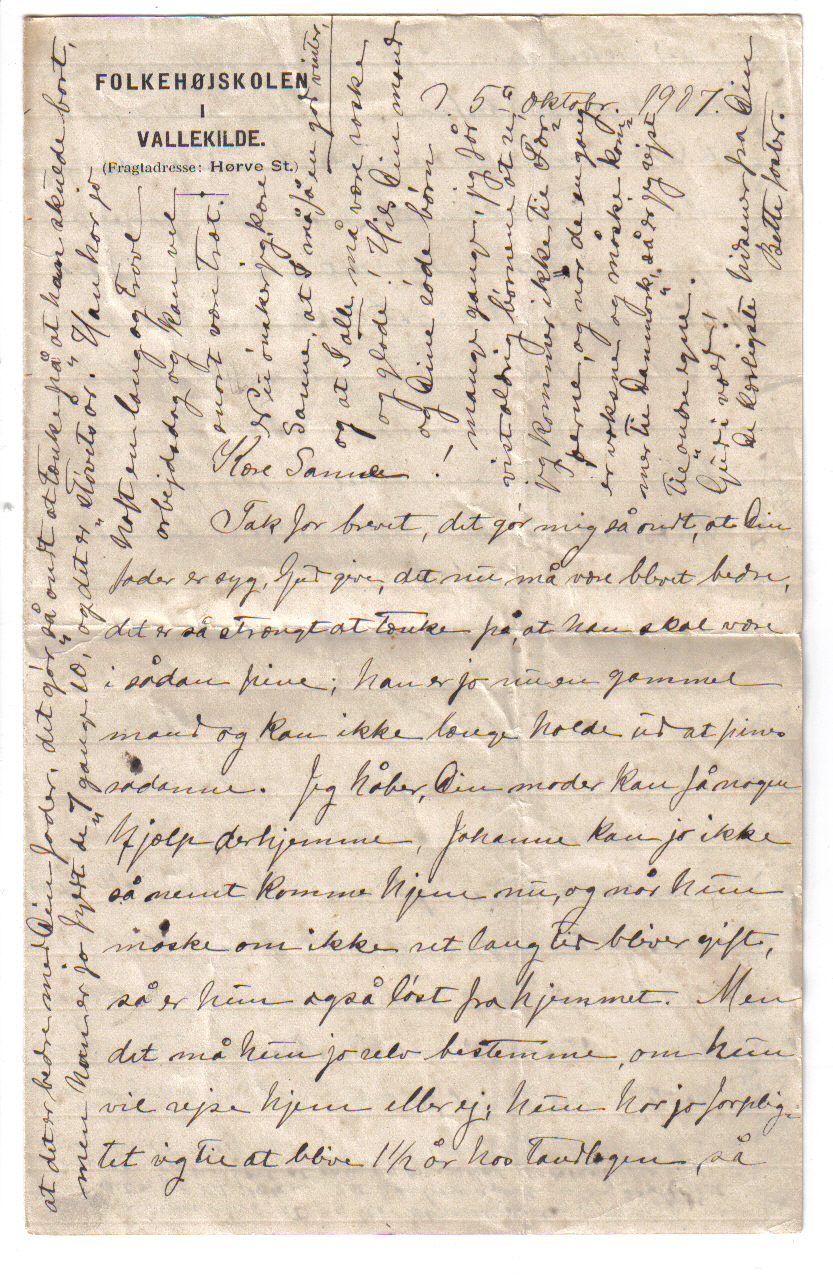 FOLKEHØJSKOLEN
I
VALLEKILDE.
(Fragtadresse: Hørve St.)
5 Oktobr. 1907.
Kære Sanne !
Tak for brevet, det gör mig så ondt, at Din
fader er syg, Gud give, det nu må være blevet bedre,
det er så strængt at tænke på, at han skal være
i sådan pine; han er jo nu en gammel
mand og kan ikke længe holde ud at pines
sådanne. Jeg håber, Din moder kan få nogen
hjælp derhjemme, Johanne kan jo ikke
så nemt komme hjem nu, og når hun
måske om ikke ret lang tid bliver gift,
så er hun også löst fra hjemmet. Men
det må hun jo selv bestemme, om hun
vil rejse hjem eller ej; hun har jo forplig-
tet sig til at blive 1½ år hos Tandlægen, så
at det er bedre med Din fader, det gör så ondt at tænke på at han skulde bort,
men han er jo fyldt de 7 gange 10, og det er "stövets år." Han har jo
haft en lang og trövl
arbejdsdag og kan vel
snart være træt.
Nu ønsker jeg, kære
Sanne, at I må få en god vinter,
og at I alle må være raske
og glade! Hils Din mand
og Dine söde börn
mange gange, jeg får
vist aldrig börnene at se,
jeg kommer ikke til Fær-
öerne, og når de en gang
er voksne og måske kom-
mer til Danmark, så er jeg rejst
til andre egne.
Gud i vold!
De kærligste hilsener fra Din
Bette faster.